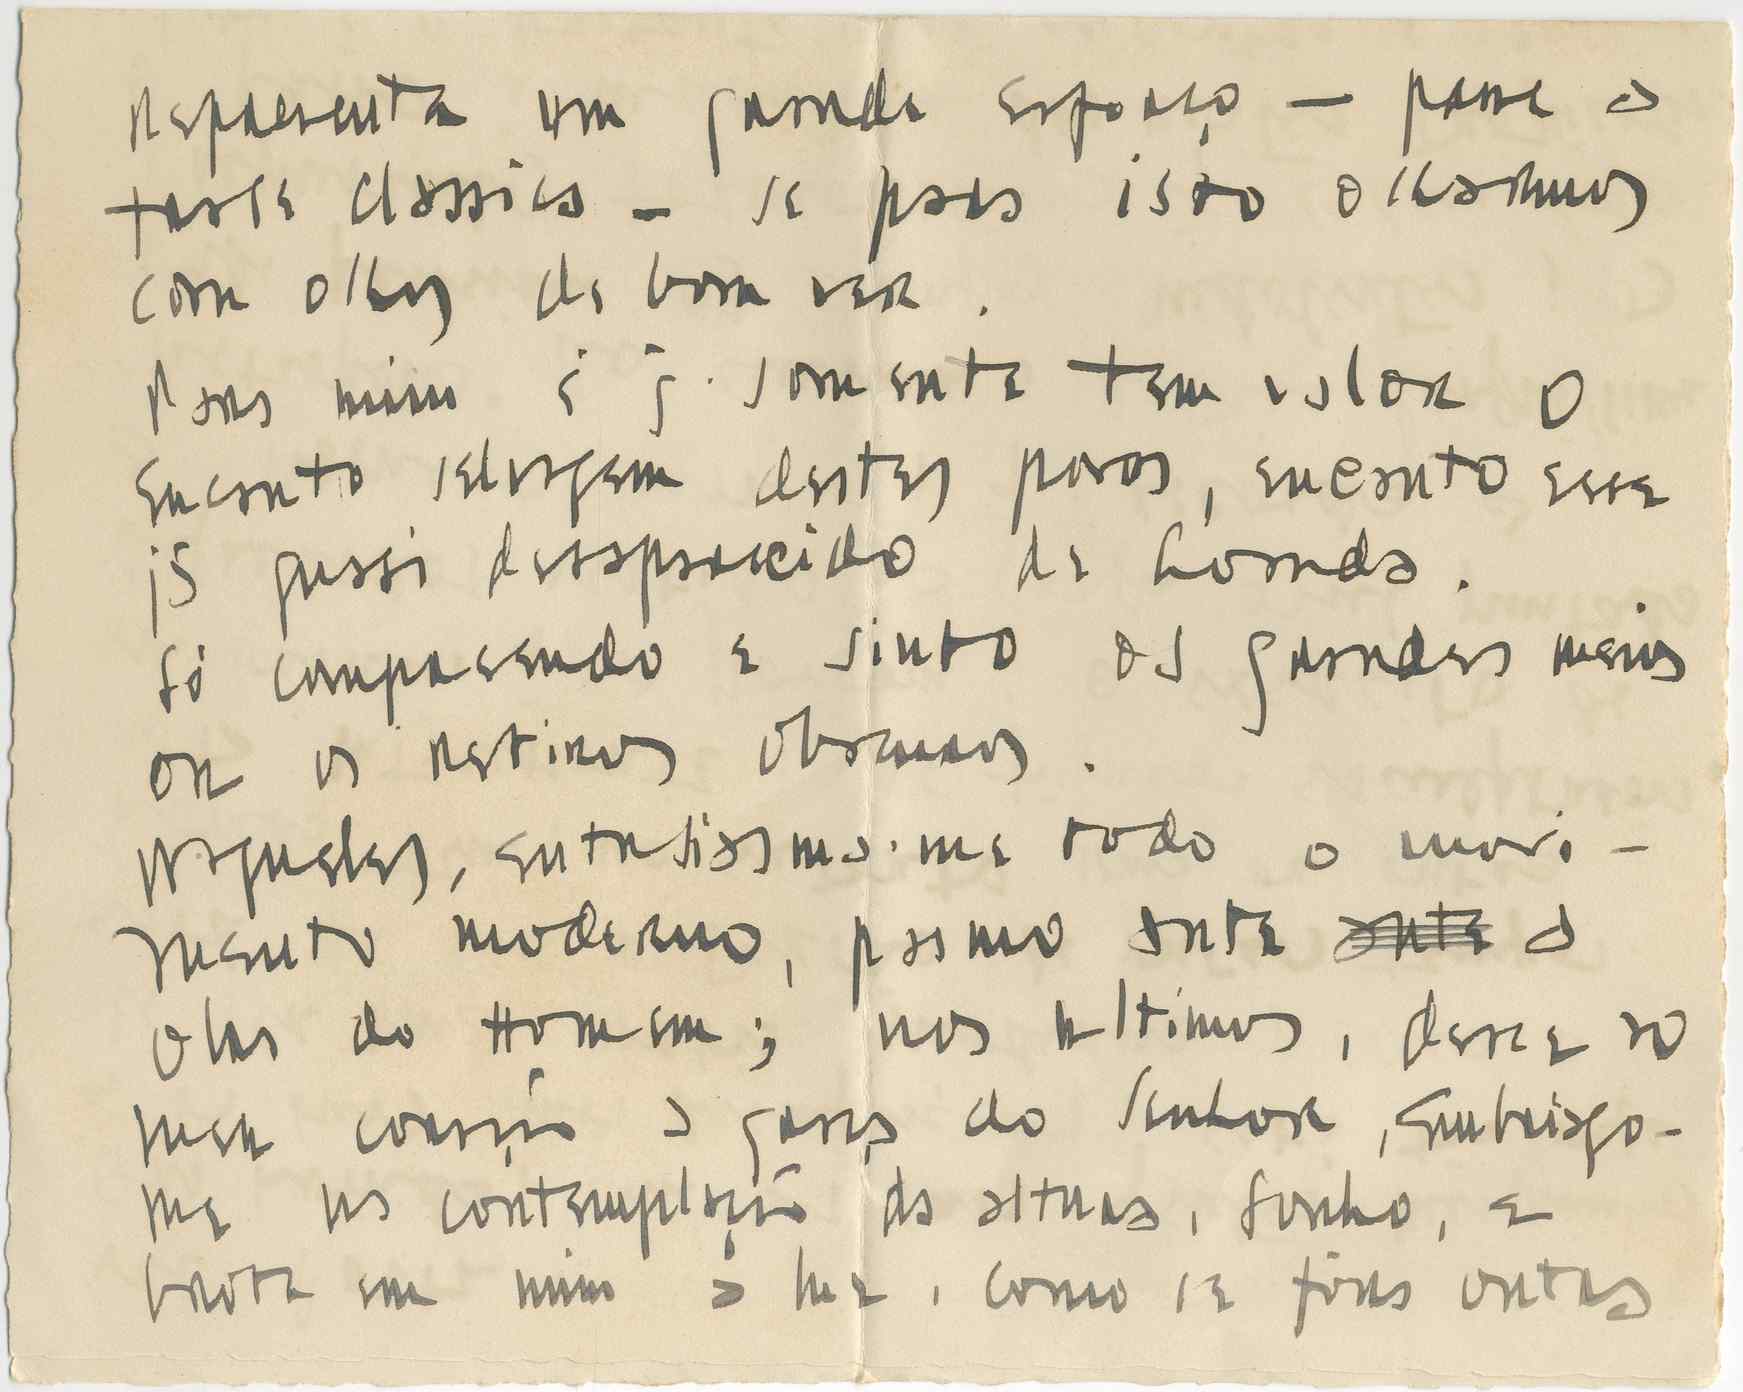 representa um grande esforço — passe a
frase classica — se para isto olharmos
com olhos de bom ver.
Para mim é q. somente tem valor o
encanto selvagem destes povos, encanto esse
já quasi desaparecido de Loanda.
Só compreendo e sinto os grandes meios
ou os retiros obscuros.
Naqueles, entusiasma-me todo o movi-
mento moderno, pasmo ante ante a
obra do Homem; nos ultimos, desce ao
meu coração a graça do Senhor, embriago-
me na contemplação da altura, sonho, e
brota em mim a luz, como se fora outra